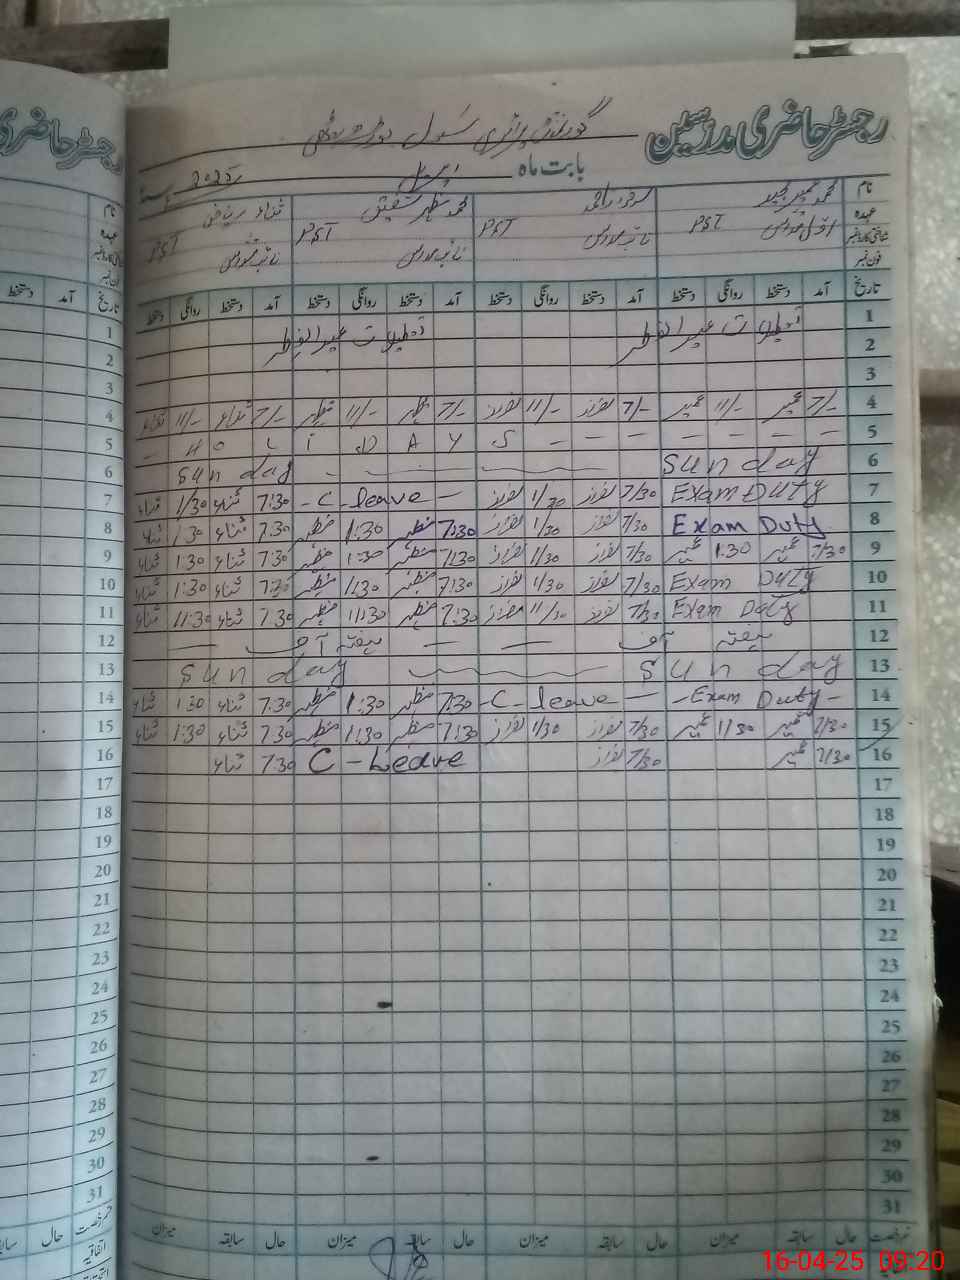 رجسٹر حاضری مدرسین گورنمنٹ پرائمری سکول
بابت ماہ اپریل 2025
نام محمد عمیر مجید سرفراز احمد محمد مظہر شفیق ثناء ریاض
عہدہ اول مدرس PST نائب مدرس PST نائب مدرس PST نائب مدرس PST
شناختی کارڈ نمبر
فون نمبر
تاریخ آمد دستخط روانگی دستخط آمد دستخط روانگی دستخط آمد دستخط روانگی دستخط آمد دستخط روانگی دستخط
1 تعطیلات عید الفطر تعطیلات عید الفطر
2
3
4 7/- عمیر 11/- عمیر 7/- سفراز 11/- سفراز 7/- مظہر 11/- مظہر 7/- ثناء 11/- ثناء
5 - H O L I D A Y S - - - - - - - -
6 Sunday Sunday
7 Exam DUTY 7/30 سفراز 1/30 سفراز - C - leave - 7:30 ثناء 1/30 ثناء
8 Exam Duty 7/30 سفراز 1/30 سفراز 7:30 مظہر 1:30 مظہر 7:30 ثناء 1:30 ثناء
9 7/30 عمیر 1:30 عمیر 7/30 سفراز 1/30 سفراز 7:30 مظہر 1:30 مظہر 7:30 ثناء 1:30 ثناء
10 Exam DUTY 7/30 سفراز 1/30 سفراز 7:30 مظہر 1:30 مظہر 7:30 ثناء 1:30 ثناء
11 Exam Duty 7/30 سفراز 11/30 سفراز 7:30 مظہر 11:30 مظہر 7:30 ثناء 11:30 ثناء
12 ہفتہ آف — — ہفتہ آف —
13 Sunday Sunday
14 - Exam Duty - - C - leave — 7:30 مظہر 1:30 مظہر 7:30 ثناء 1:30 ثناء
15 7/30 عمیر 1/30 عمیر 7/30 سفراز 1/30 سفراز 7:30 مظہر 1:30 مظہر 7:30 ثناء 1:30 ثناء
16 7/30 عمیر 7/30 سفراز C - Leave 7:30 ثناء
17
18
19
20
21
22
23
24
25
26
27
28
29
30
31
حال سابقہ میزان حال سابقہ میزان حال سابقہ میزان حال سابقہ میزان
رجسٹر حاضری
نام
عہدہ
شناختی کارڈ نمبر
فون نمبر
تاریخ آمد دستخط
1
2
3
4
5
6
7
8
9
10
11
12
13
14
15
16
17
18
19
20
21
22
23
24
25
26
27
28
29
30
31
قسم رخصت حال
اتفاقیہ
16-04-25 09:20